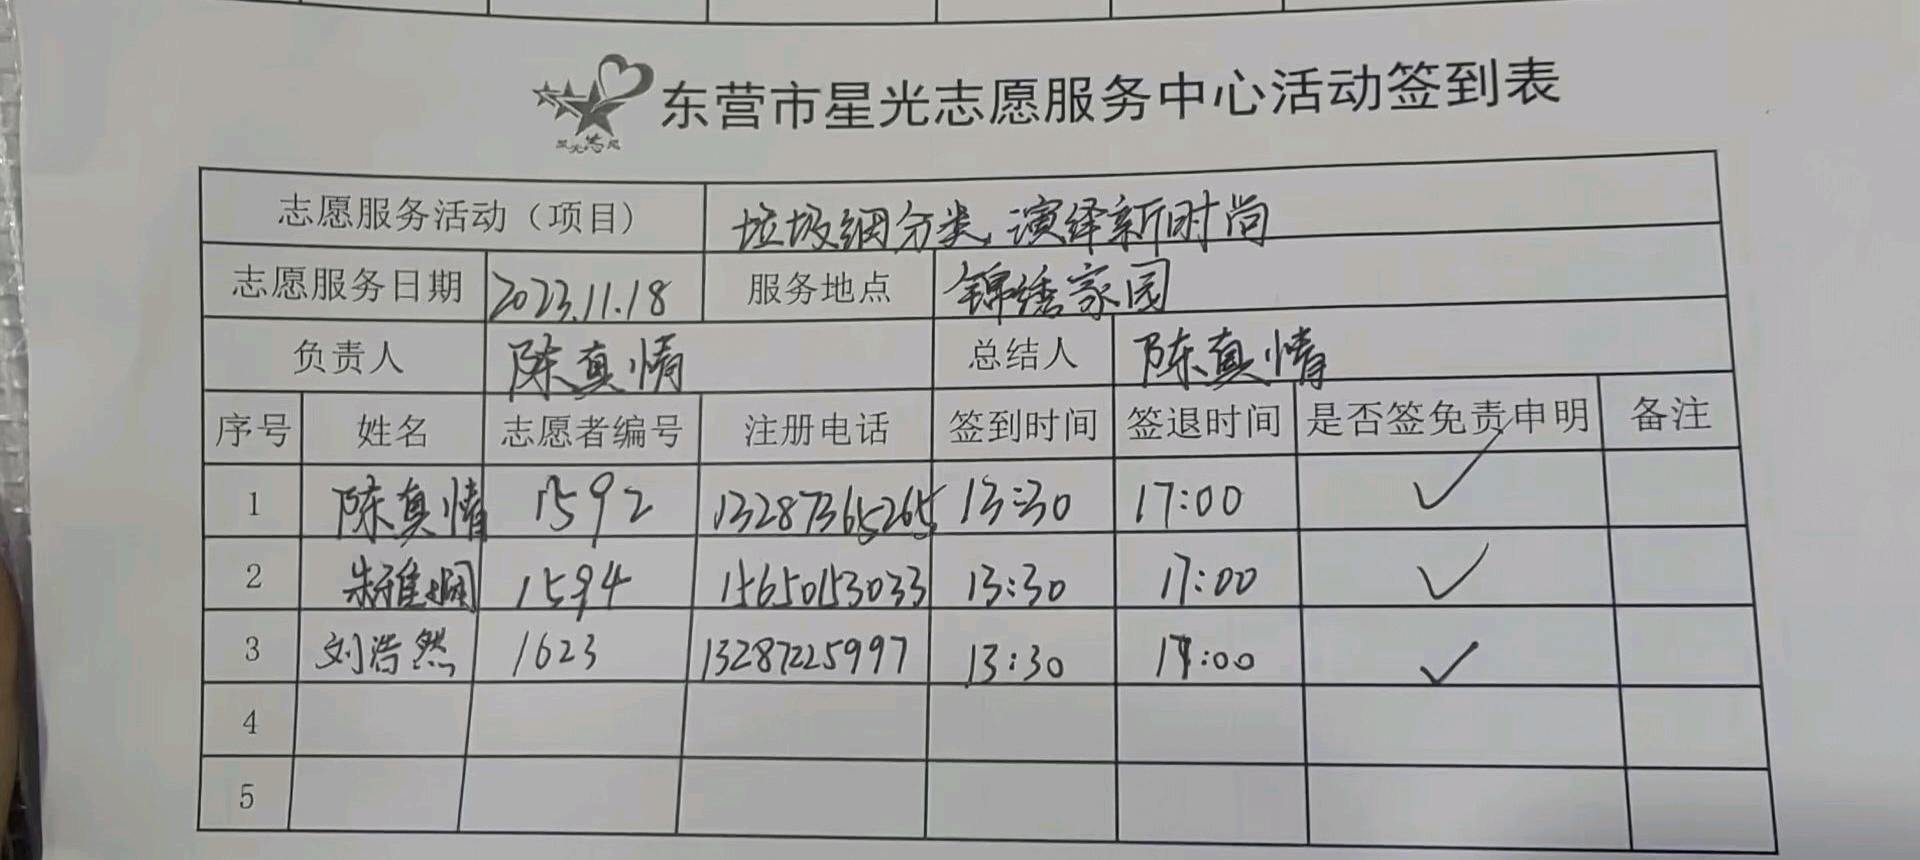 星光志愿
东营市星光志愿服务中心活动签到表
志愿服务活动（项目） 垃圾细分类,演绎新时尚
志愿服务日期 2023.11.18 服务地点 锦绣家园
负责人 陈真情 总结人 陈真情
序号 姓名 志愿者编号 注册电话 签到时间 签退时间 是否签免责申明 备注
1 陈真情 1592 13287365265 13:30 17:00 ✓
2 朱雅娴 1594 15650153033 13:30 17:00 ✓
3 刘浩然 1623 13287225997 13:30 17:00 ✓
4
5